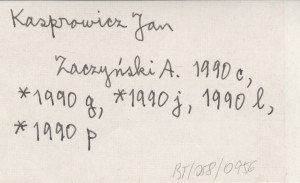 Kasprowicz Jan
Zaczyński A. 1990 c,
*1990 g, *1990 j, 1990 l,
*1990 p